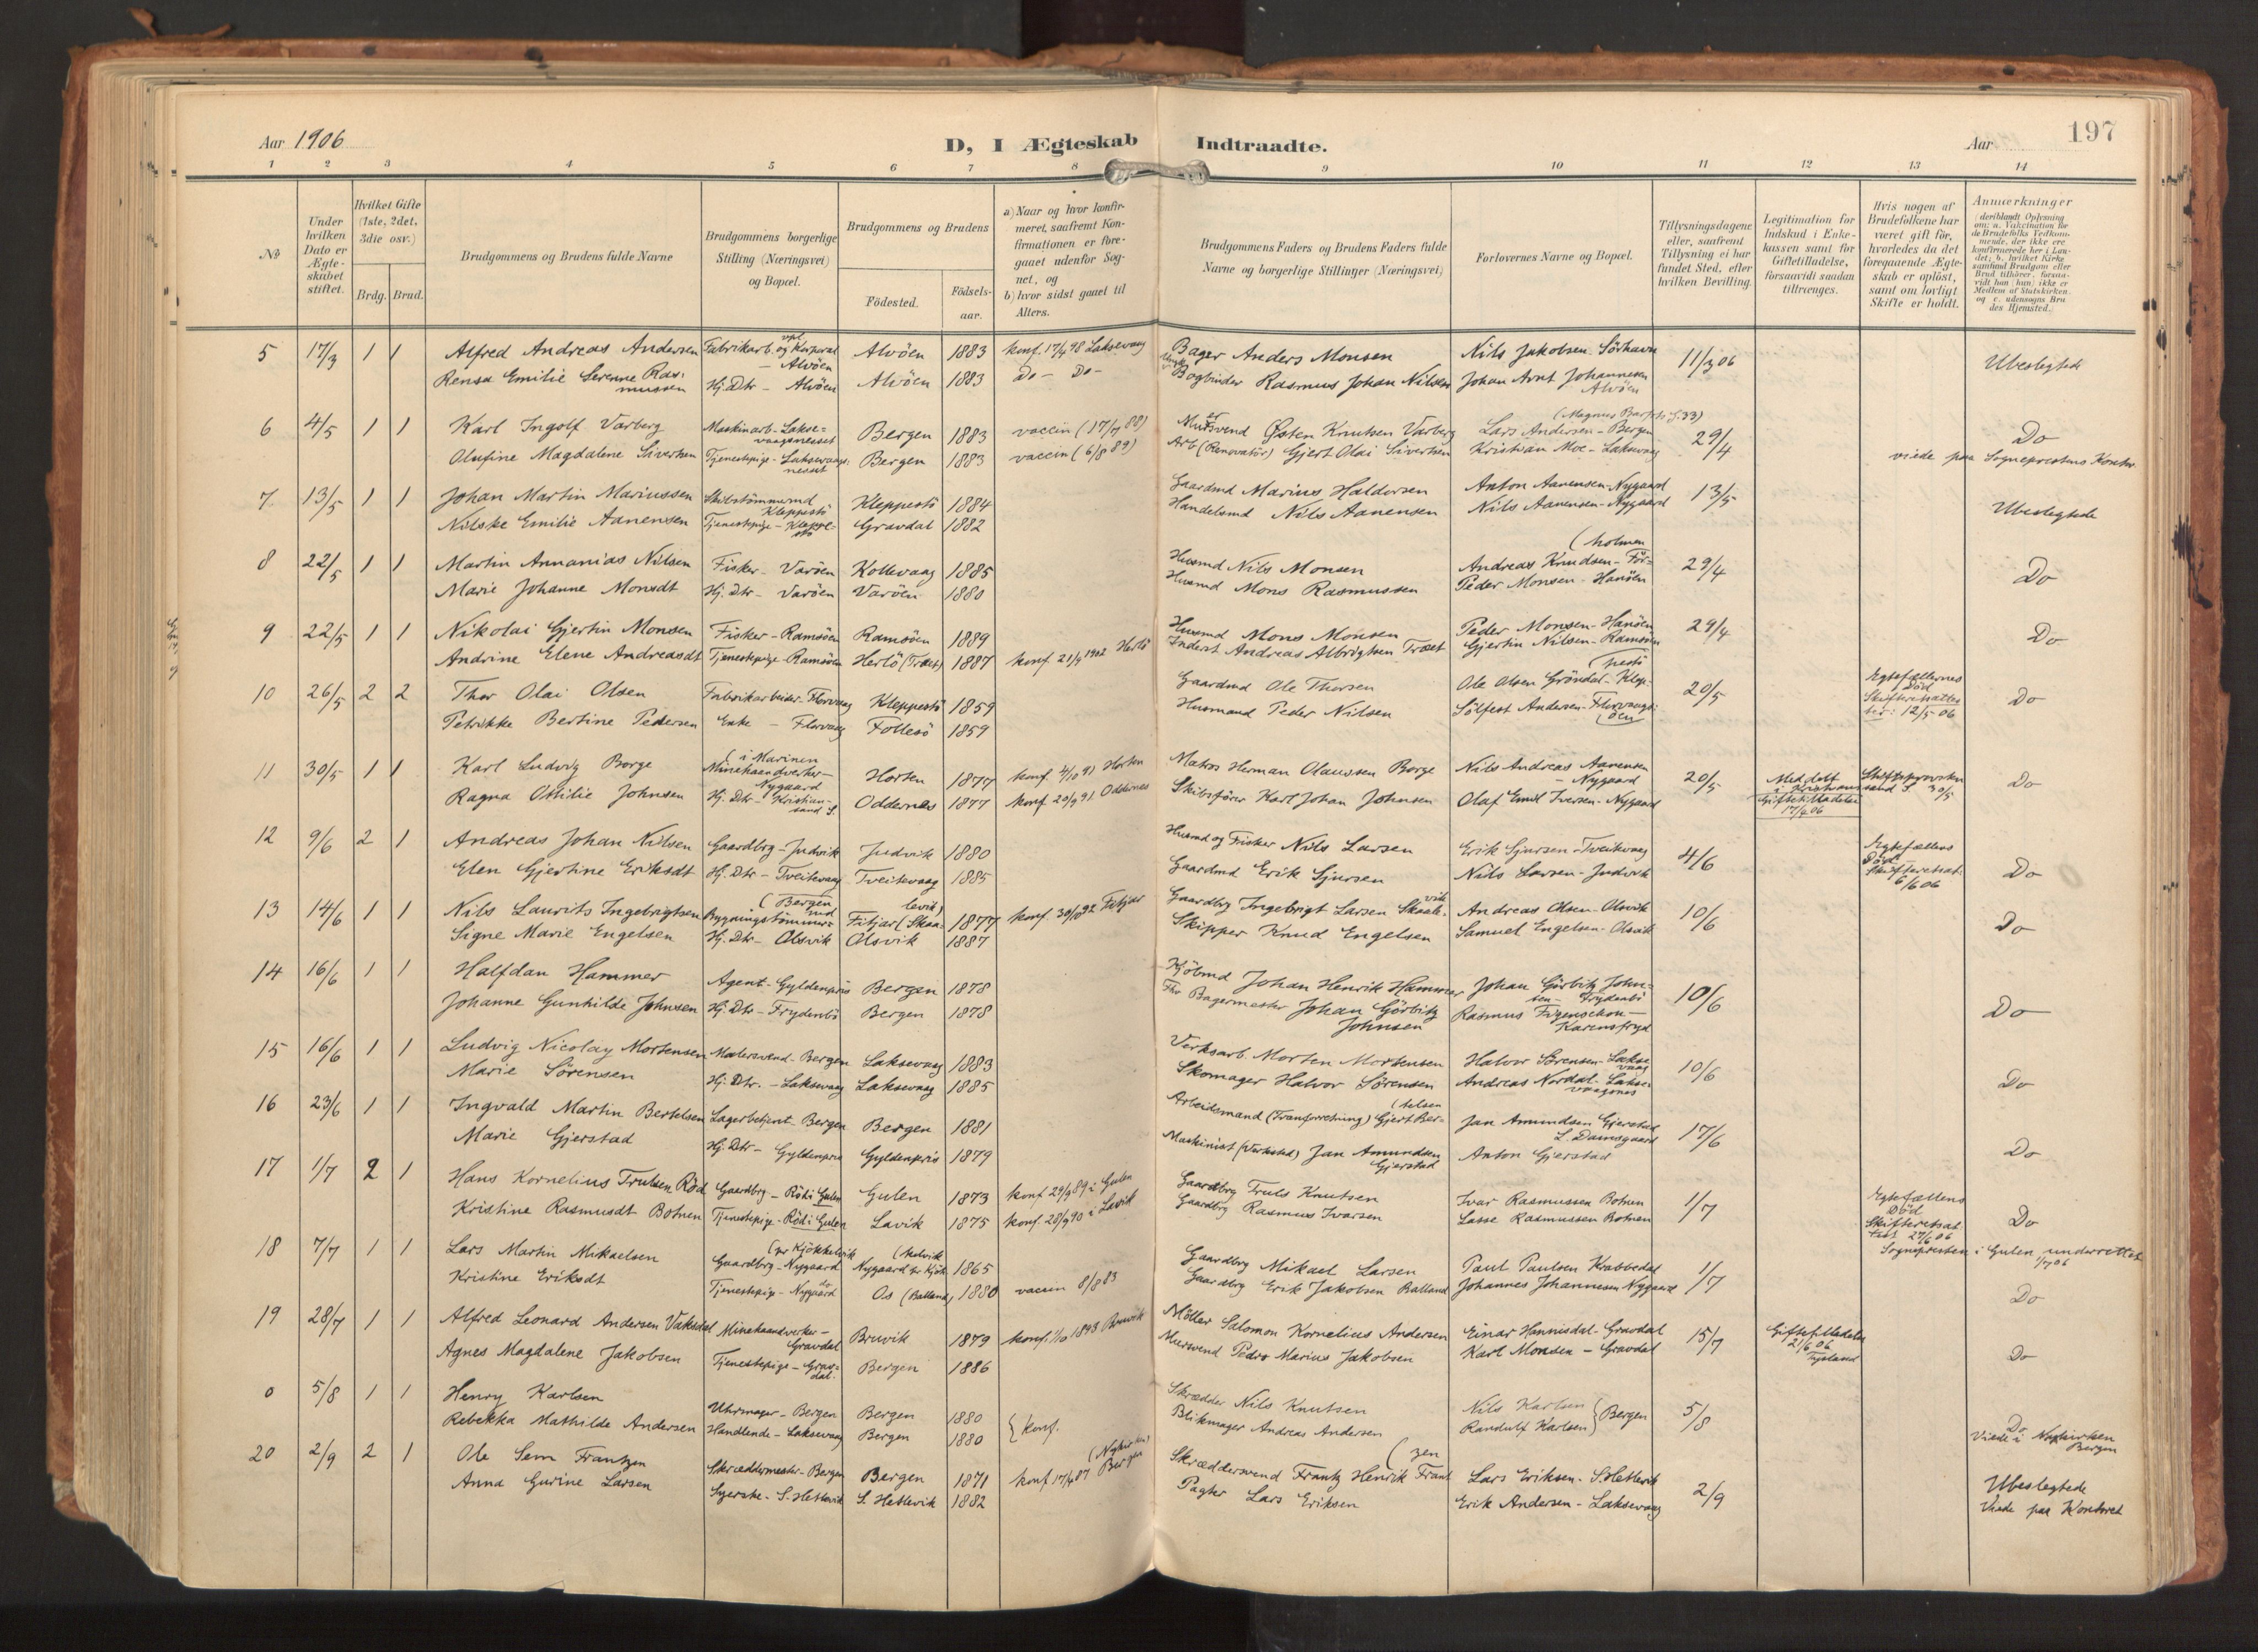 Aar 1906
D, I Ægteskab Indtraadte.
Aar
197
1 2 3 4 5 6 7 8 9 10 11 12 13 14
No
Under hvilken Dato er Ægteskabet stiftet.
Hvilket Gifte (1ste, 2det, 3die osv.)
Brdg. Brud.
Brudgommens og Brudens fulde Navne
Brudgommens borgerlige Stilling (Næringsvei) og Bopæl.
Brudgommens og Brudens
Födested.
Födsels-aar.
a) Naar og hvor konfirmeret, saafremt Konfirmationen er foregaaet udenfor Sognet, og
b) hvor sidst gaaet til Alters.
Brudgommens Faders og Brudens Faders fulde Navne og borgerlige Stillinger (Næringsvei)
Forlovernes Navne og Bopæl.
Tillysningsdagene eller, saafremt Tillysning ei har fundet Sted, efter hvilken Bevilling.
Legitimation for Indskud i Enkekassen samt for Giftetilladelse, forsaavidt saadan tiltrænges.
Hvis nogen af Brudefolkene har været gift för, hvorledes da det foregaaende Ægteskab er oplöst, samt om lovligt Skifte er holdt.
Anmærkninger
(deriblandt Oplysning om: a. Vakcination for de Brudefolks Vedkommende, der ikke ere konfirmerede her i Landet; b. hvilket Kirkesamfund Brudgom eller Brud tilhörer, forsaavidt han (hun) ikke er Medlem af Statskirken, og c. udensogns Brudes Hjemsted.)
5 17/3 1 1 Alfred Andreas Andersen Fabrikarb. og vpl. Korporal - Alvöen Alvöen 1883 konf. 17/4 98 Laksevaag Bager Anders Monsen Nils Jakobsen Sörhavn 11/3 06 Ubeslegtede
Rensa Emilie Serenne Rasmussen Hj. Dtr - Alvöen Alvöen 1883 Do - Do - Bogbinder Rasmus Johan Nilsen Johan Arnt Johannesen Alvöen
6 4/5 1 1 Karl Ingolf Varberg Maskinarb - Laksevaagsnesset Bergen 1883 vaccin (17/7 88) Mursvend Østen Knutsen Varberg Lars Andersen - Bergen (Magnus Barfots g. 33) 29/4 Do
Olufine Magdalene Sivertsen Tjenestepige - Laksevaagsnesset Bergen 1883 vaccin (6/8 89) Arb (Renovatör) Gjert Olai Sivertsen Kristian Moe - Laksevaag viede paa Sogneprestens Kontor
7 13/5 1 1 Johan Martin Mariussen Skibstömmermd Kleppestö Kleppestö 1884 Gaardmd Marius Haldorsen Anton Aanensen - Nygaard 13/5 Ubeslegtede
Nilske Emilie Aanensen Tjenestepige - Kleppestö Gravdal 1882 Handelsmd Nils Aanensen Nils Aanensen - Nygaard
8 22/5 1 1 Martin Annanias Nilsen Fisker - Varöen Kollevaag 1885 Husmd Nils Monsen Andreas Knudsen - Förholmen 29/4 Do
Marie Johanne Monsdt Hj. Dtr - Varöen Varöen 1880 Husmd Mons Rasmussen Peder Monsen - Hanöen
9 22/5 1 1 Nikolai Gjertin Monsen Fisker - Ramsöen Ramsöen 1889 Husmd Mons Monsen Peder Monsen - Hanöen 29/4 Do
Andrine Elene Andreasdt Tjenestepige - Ramsöen Herlö (Træet) 1887 konf. 21/9 1902 Herlö Inderst Andreas Albrigtsen Træet Gjertin Nilsen - Ramsöen
10 26/5 2 2 Thor Olai Olsen Fabrikarbeider - Florvaag Kleppestö 1859 Gaardmd Ole Thorsen Ole Olsen Gröndal - Kleppestö 20/5 Egtefællernes Död Skifteretsattester: 12/5 06 Do
Petrikke Bertine Pedersen Enke - Florvaag Follesö 1859 Husmand Peder Nilsen Sölfest Andersen - Florvaagöen
11 30/5 1 1 Karl Ludvig Borge Minehaandverker (i Marinen - Nygaard Horten 1877 konf. 4/10 91 Horten Matros Herman Olaussen Borge Nils Andreas Aanensen - Nygaard 20/5 Meddelt i Kristianssand S. 30/5 Giftetilladelse 17/4 06 Do
Ragna Ottilie Johnsen Hj. Dtr - Kristiansand S. Oddernes 1877 konf. 20/9 91 Oddernes Skibsförer Karl Johan Johnsen Olaf Emil Iversen - Nygaard
12 9/6 2 1 Andreas Johan Nilsen Gaardbrg - Judvik Judvik 1880 Husmd og Fisker Nils Larsen Erik Sjursen - Tveitevaag 4/6 Egtefællens Död Skifteretsat. 6/6 06 Do
Elen Gjertine Eriksdt Hj. Dtr - Tveitevaag Tveitevaag 1885 Gaardmd Erik Sjursen Nils Larsen - Judvik
13 14/6 1 1 Nils Laurits Ingebrigtsen Bygningstömmermd (Bergen Fitjar (Skaalevik) 1877 konf. 30/10 92 Fitjar Gaardbrg Ingebrigt Larsen Skaalevik Andreas Olsen - Olsvik 10/6 Do
Signe Marie Engelsen Hj. Dtr - Olsvik Olsvik 1887 Skipper Knud Engelsen Samuel Engelsen - Olsvik
14 16/6 1 1 Halfdan Hammer Agent - Gyldenpris Bergen 1878 Kjöbmd Johan Henrik Hammer Johan Görbitz Johnsen - Frydenbö 10/6 Do
Johanne Gunhilde Johnsen Hj. Dtr - Frydenbö Bergen 1878 Fhv Bagermester Johan Görbitz Johnsen Rasmus Figenschou - Karensfryd
15 16/6 1 1 Ludvig Nicolay Mortensen Malersvend - Bergen Laksevaag 1883 Verksarb. Morten Mortensen Halvor Sörensen - Laksevaag 10/6 Do
Marie Sörensen Hj. Dtr. - Laksevaag Laksevaag 1885 Skomager Halvor Sörensen Andreas Nordal - Laksevaagsnes
16 23/6 1 1 Ingvald Martin Bertelsen Lagerbetjent - Bergen Bergen 1881 Arbeidsmand (Tranforretning) Gjert Bertelsen Jan Amundsen Gjerstad L. Damsgaard 17/6 Do
Marie Gjerstad Hj. Dtr - Gyldenpris Gyldenpris 1879 Maskinist (Verksted) Jan Amundsen Gjerstad Anton Gjerstad
17 1/7 2 1 Hans Kornelius Trulsen Röd Gaardbrg - Röd i Gulen Gulen 1873 konf 29/9 89 i Gulen Gaardbrg Truls Knutsen Ivar Rasmussen Botnen 1/7 Egtefællens Död Skifteretsattest 27/6 06 Do
Kristine Rasmusdt Botnen Tjenestepige - Röd i Gulen Lavik 1875 konf. 28/9 90 i Lavik Gaardbrg Rasmus Ivarsen Lasse Rasmussen Botnen Sognepresten i Gulen underrettet 1/7 06
18 7/7 1 1 Lars Martin Mikaelsen Gaardbrg - Nygaard (pr Kjökkelvik Nygaard pr Kjökkelvik 1865 Gaardbrg Mikael Larsen Paul Paulsen Krabbedal 1/7 Do
Kristine Eriksdt Tjenestepige - Nygaard do Os (Balland) 1880 vaccin 8/8 83 Gaardbrg Erik Jakobsen Balland Johannes Johannesen Nygaard
19 28/7 1 1 Alfred Leonard Andersen Vaksdal Minehaandverker - Gravdal Bruvik 1879 konf. 1/10 1893 Bruvik Möller Salomon Kornelius Andersen Einar Hannisdal - Gravdal 15/7 Giftetilladelse 21/6 06 Do
Agnes Magdalene Jakobsen Tjenestepige - Gravdal. Bergen 1886 Mursvend Peder Marius Jakobsen Karl Monsen - Gravdal
0 5/8 1 1 Henry Karlsen Uhrmager - Bergen Bergen 1880 konf. Skrædder Nils Knutsen Nils Karlsen Bergen 5/8 Do
Rebekka Mathilde Andersen Handlende - Laksevaag Bergen 1880 Blikmager Andreas Andersen Randulf Karlsen Viede i Nykirken Bergen
20 2/9 2 1 Ole Sem Frantzen Skræddermester - Bergen Bergen 1871 konf 17/4 87 Bergen (Nykirken) Skræddersvend Frantz Henrik Frantzen Lars Eriksen - S. Hetlevik 2/9 Ubeslegtede
Anna Gurine Larsen Syerske - S. Hetlevik S. Hetlevik 1882 Pagter Lars Eriksen Erik Andersen - Laksevaag Viede paa Kontoret